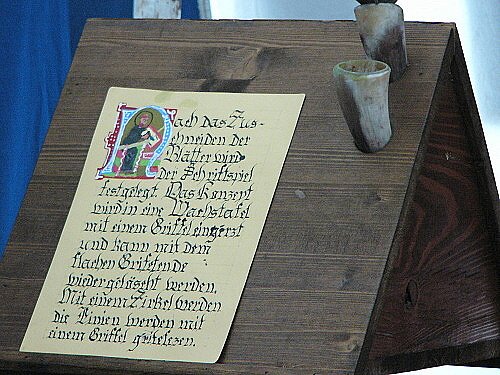 Nach das Zus-
chneiden der
Blätter wird
der Schriftspiel
festgelegt. Das Konzept
wird in eine Wachstafel
mit einem Griffel eingerzt
und kann mit dem
flachen Grifelende
wiedergelöscht werden.
Mit einem Zirkel werden
die Linien werden mit
einem Griffel